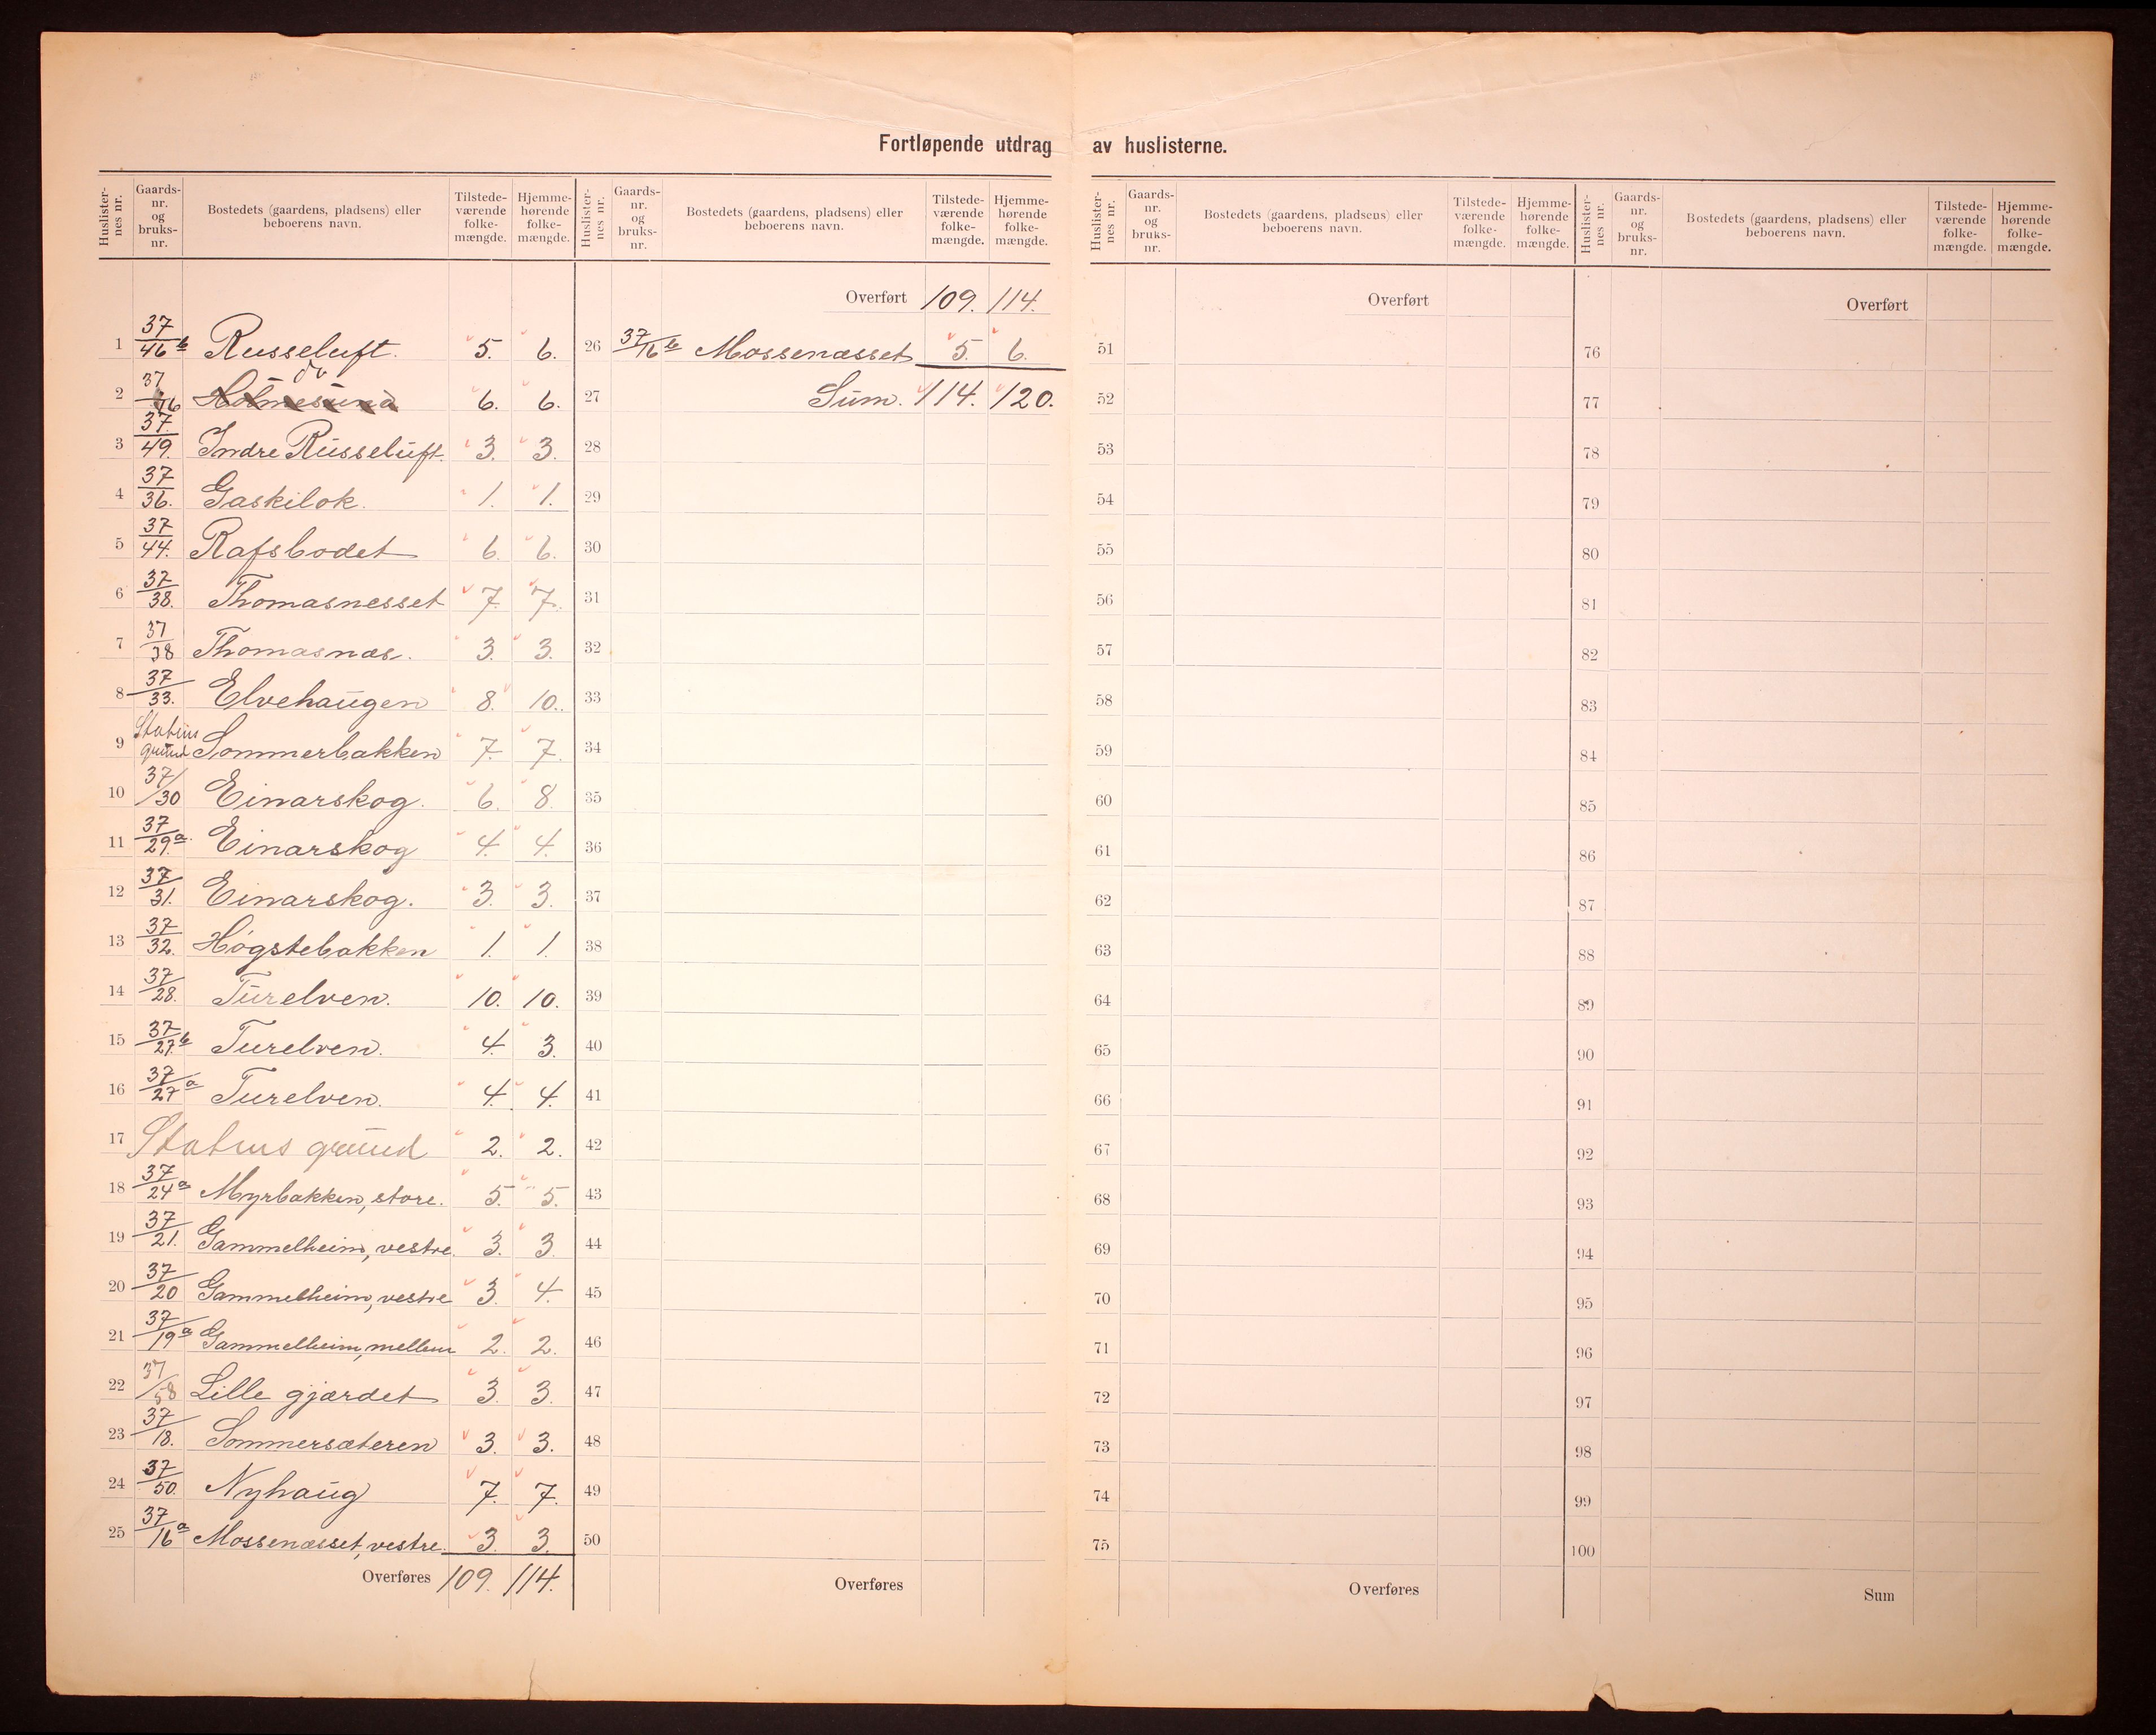 Fortløpende utdrag av huslisterne.
Huslister-nes nr. Gaards-nr. og bruks-nr. Bostedets (gaardens, pladsens) eller beboerens navn. Tilstede-værende folke-mængde. Hjemme-hørende folke-mængde.
1 37/46 b Russeluft. 5. 6.
2 37/46 do Holmesund 6. 6.
3 37/49. Indre Russeluft. 3. 3.
4 37/36. Gaskilok. 1. 1.
5 37/44. Rafsbodet 6. 6.
6 37/38. Thomasnesset 7. 7.
7 37/38 Thomasnæs. 3. 3.
8 37/33. Elvehaugen 8. 10.
9 Statens grund Sommerbakken 7. 7.
10 37/30 Einarskog. 6. 8.
11 37/29 a. Einarskog 4. 4.
12 37/31. Einarskog. 3. 3.
13 37/32. Høgstebakken 1. 1.
14 37/28. Turelven. 10. 10.
15 37/27 b Turelven. 4. 3.
16 37/27 a Turelven. 4. 4.
17 Statens grund 2. 2.
18 37/24 a Myrbakken, store. 5. 5.
19 37/21. Gammelheim, vestre. 3. 3.
20 37/20 Gammelheim, vestre 3. 4.
21 37/19 a Gammelheim, mellem 2. 2.
22 37/58 Lille gjærdet 3. 3.
23 37/18. Sommersæteren 3. 3.
24 37/50. Nyhaug 7. 7.
25 37/16 a Mossenæsset, vestre. 3. 3.
Overføres 109. 114.
Huslister-nes nr. Gaards-nr. og bruks-nr. Bostedets (gaardens, pladsens) eller beboerens navn. Tilstede-værende folke-mængde. Hjemme-hørende folke-mængde.
Overført 109. 114.
26 37/16 b Mossenæsset 5. 6.
27 Sum. 114. 120.
28
29
30
31
32
33
34
35
36
37
38
39
40
41
42
43
44
45
46
47
48
49
50
Overføres
Huslister-nes nr. Gaards-nr. og bruks-nr. Bostedets (gaardens, pladsens) eller beboerens navn. Tilstede-værende folke-mængde. Hjemme-hørende folke-mængde.
Overført
51
52
53
54
55
56
57
58
59
60
61
62
63
64
65
66
67
68
69
70
71
72
73
74
75
Overføres
Huslister-nes nr. Gaards-nr. og bruks-nr. Bostedets (gaardens, pladsens) eller beboerens navn. Tilstede-værende folke-mængde. Hjemme-hørende folke-mængde.
Overført
76
77
78
79
80
81
82
83
84
85
86
87
88
89
90
91
92
93
94
95
96
97
98
99
100
Sum